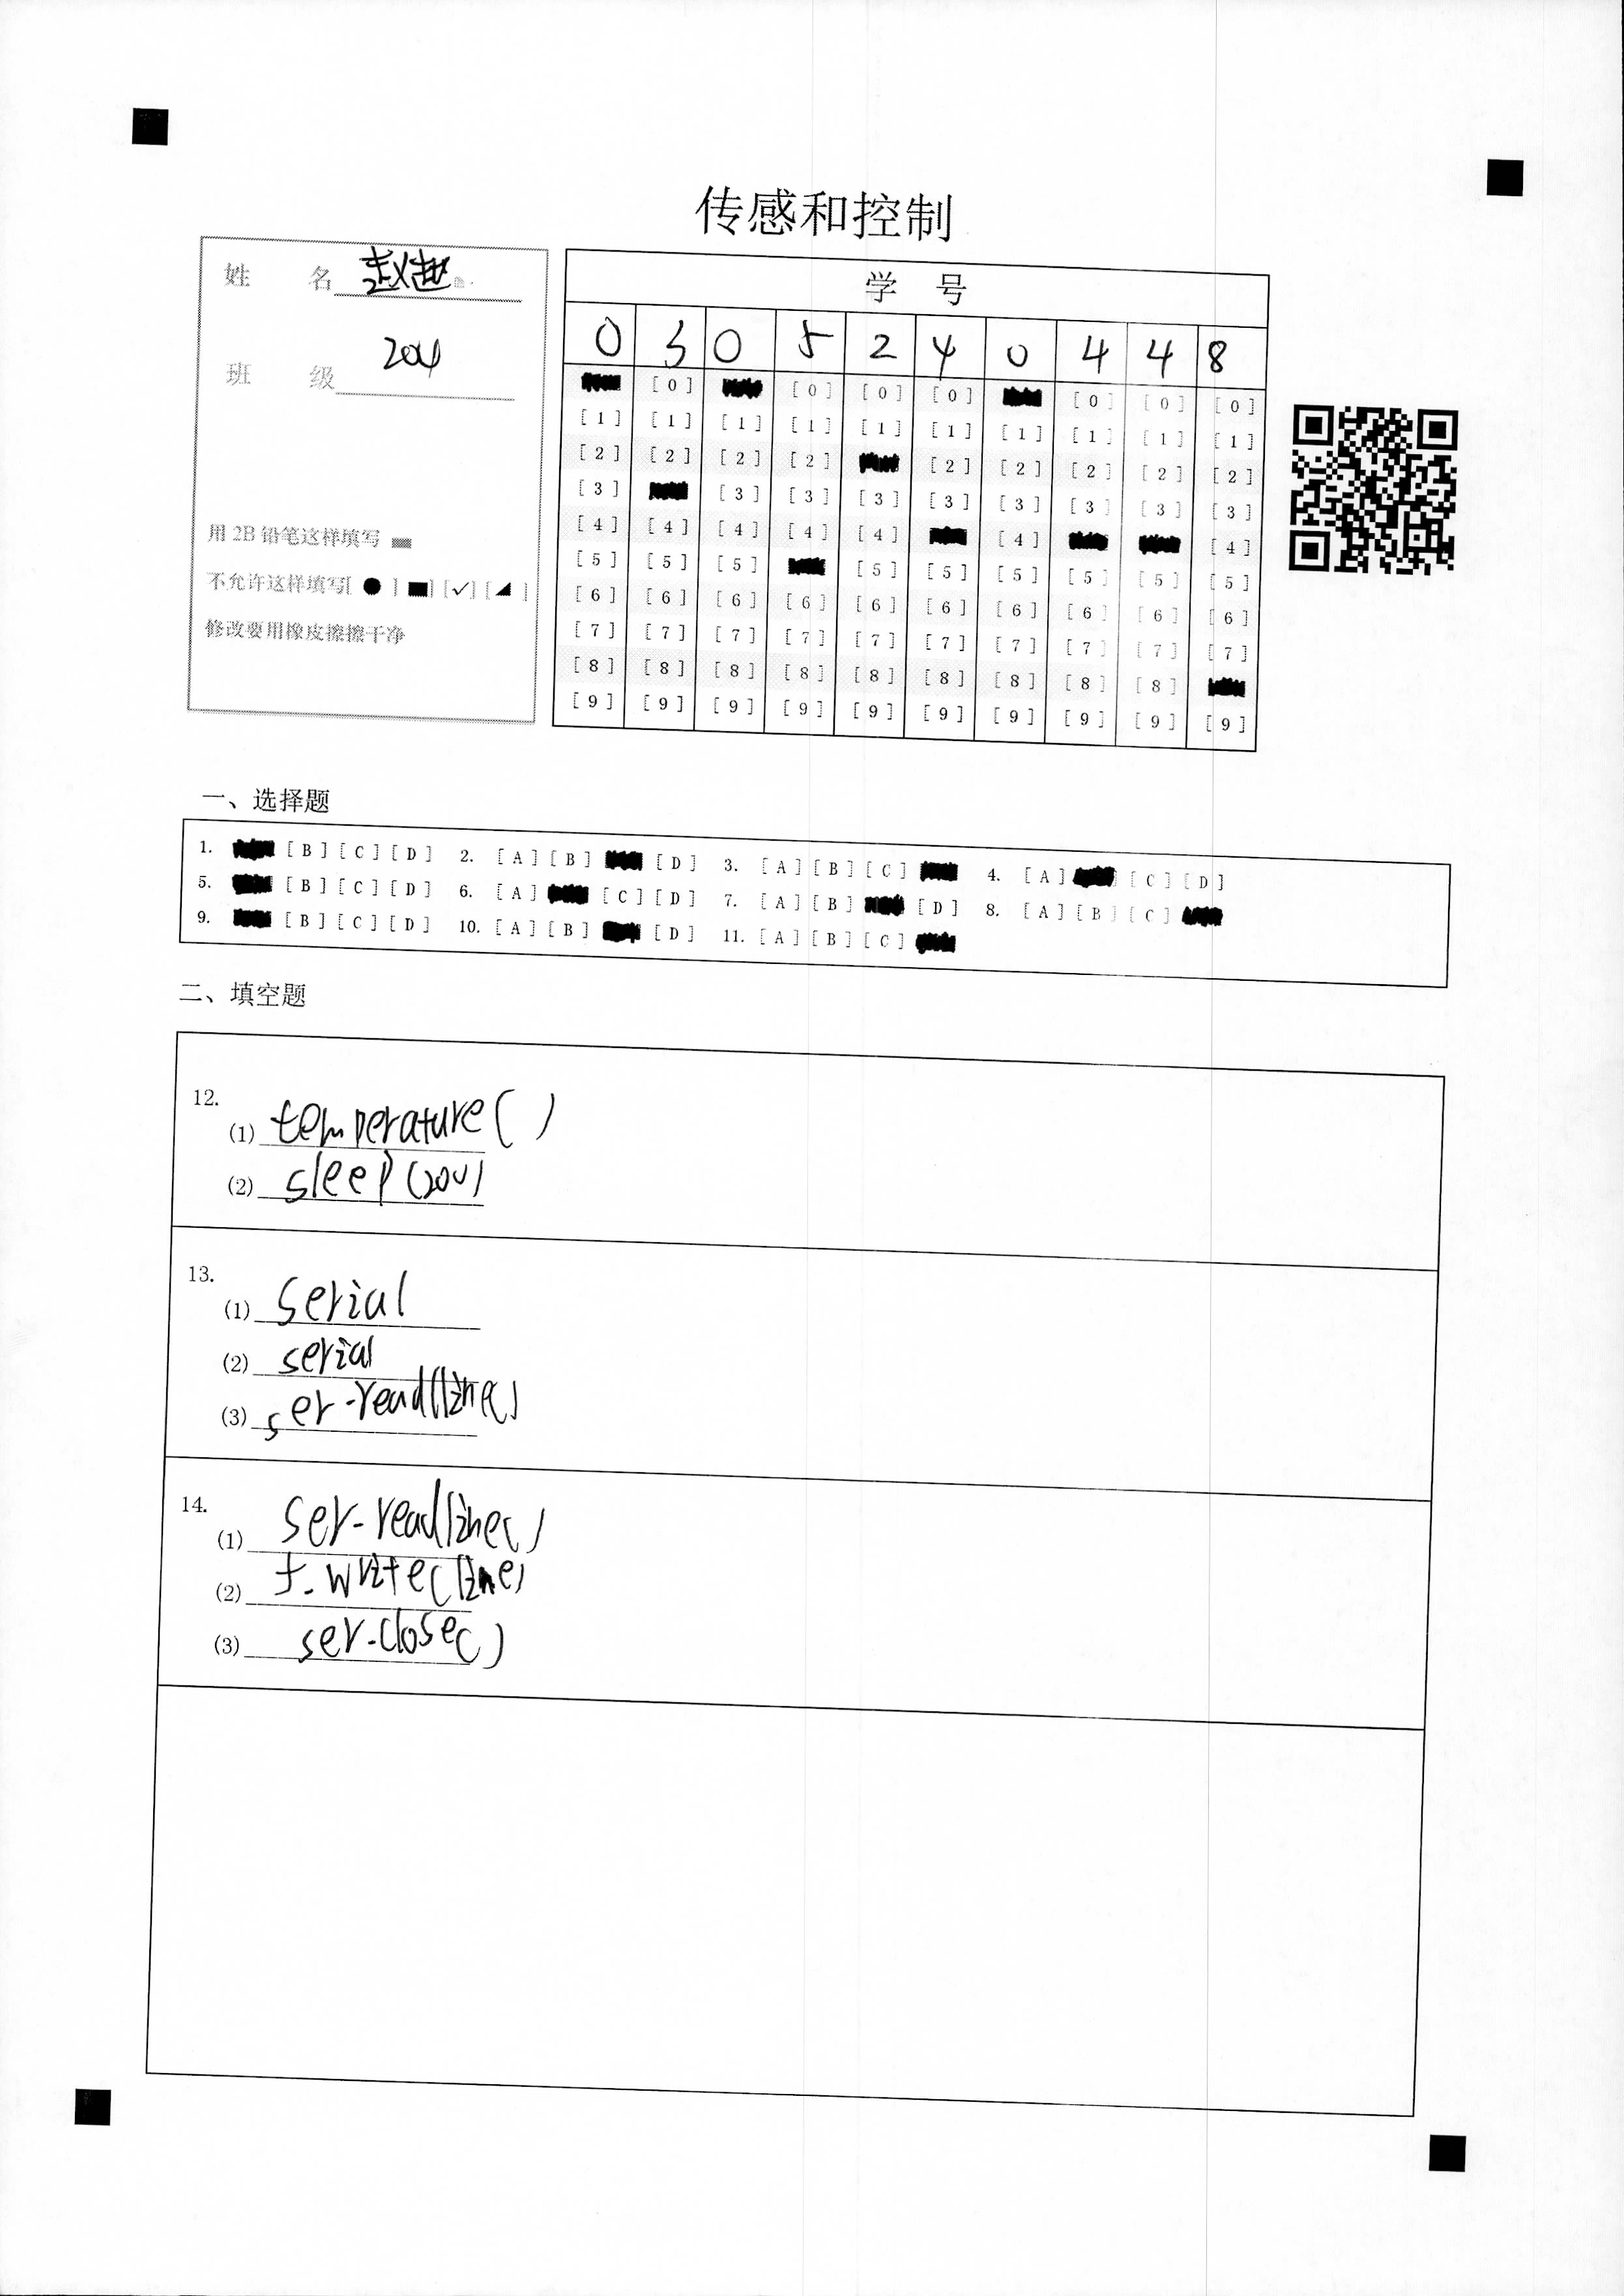 传感和控制
姓 名 赵越
班 级 204
用 2B 铅笔这样填写
不允许这样填写[ ● ] [■] [✓] [◢ ]
修改要用橡皮擦擦干净
学 号
0 3 0 5 2 4 0 4 4 8
[0] [0] [0] [0] [0] [0]
[1] [1] [1] [1] [1] [1] [1] [1] [1] [1]
[2] [2] [2] [2] [2] [2] [2] [2] [2]
[3] [3] [3] [3] [3] [3] [3] [3] [3]
[4] [4] [4] [4] [4] [4] [4]
[5] [5] [5] [5] [5] [5] [5] [5] [5]
[6] [6] [6] [6] [6] [6] [6] [6] [6] [6]
[7] [7] [7] [7] [7] [7] [7] [7] [7] [7]
[8] [8] [8] [8] [8] [8] [8] [8] [8]
[9] [9] [9] [9] [9] [9] [9] [9] [9] [9]
一、选择题
1. [B] [C] [D] 2. [A] [B] [D] 3. [A] [B] [C] 4. [A] [C] [D]
5. [B] [C] [D] 6. [A] [C] [D] 7. [A] [B] [D] 8. [A] [B] [C]
9. [B] [C] [D] 10. [A] [B] [D] 11. [A] [B] [C]
二、填空题
12.
(1) temperature( )
(2) sleep(200)
13.
(1) serial
(2) serial
(3) ser.read(line()
14.
(1) ser.readline()
(2) f.write(line)
(3) ser.close()